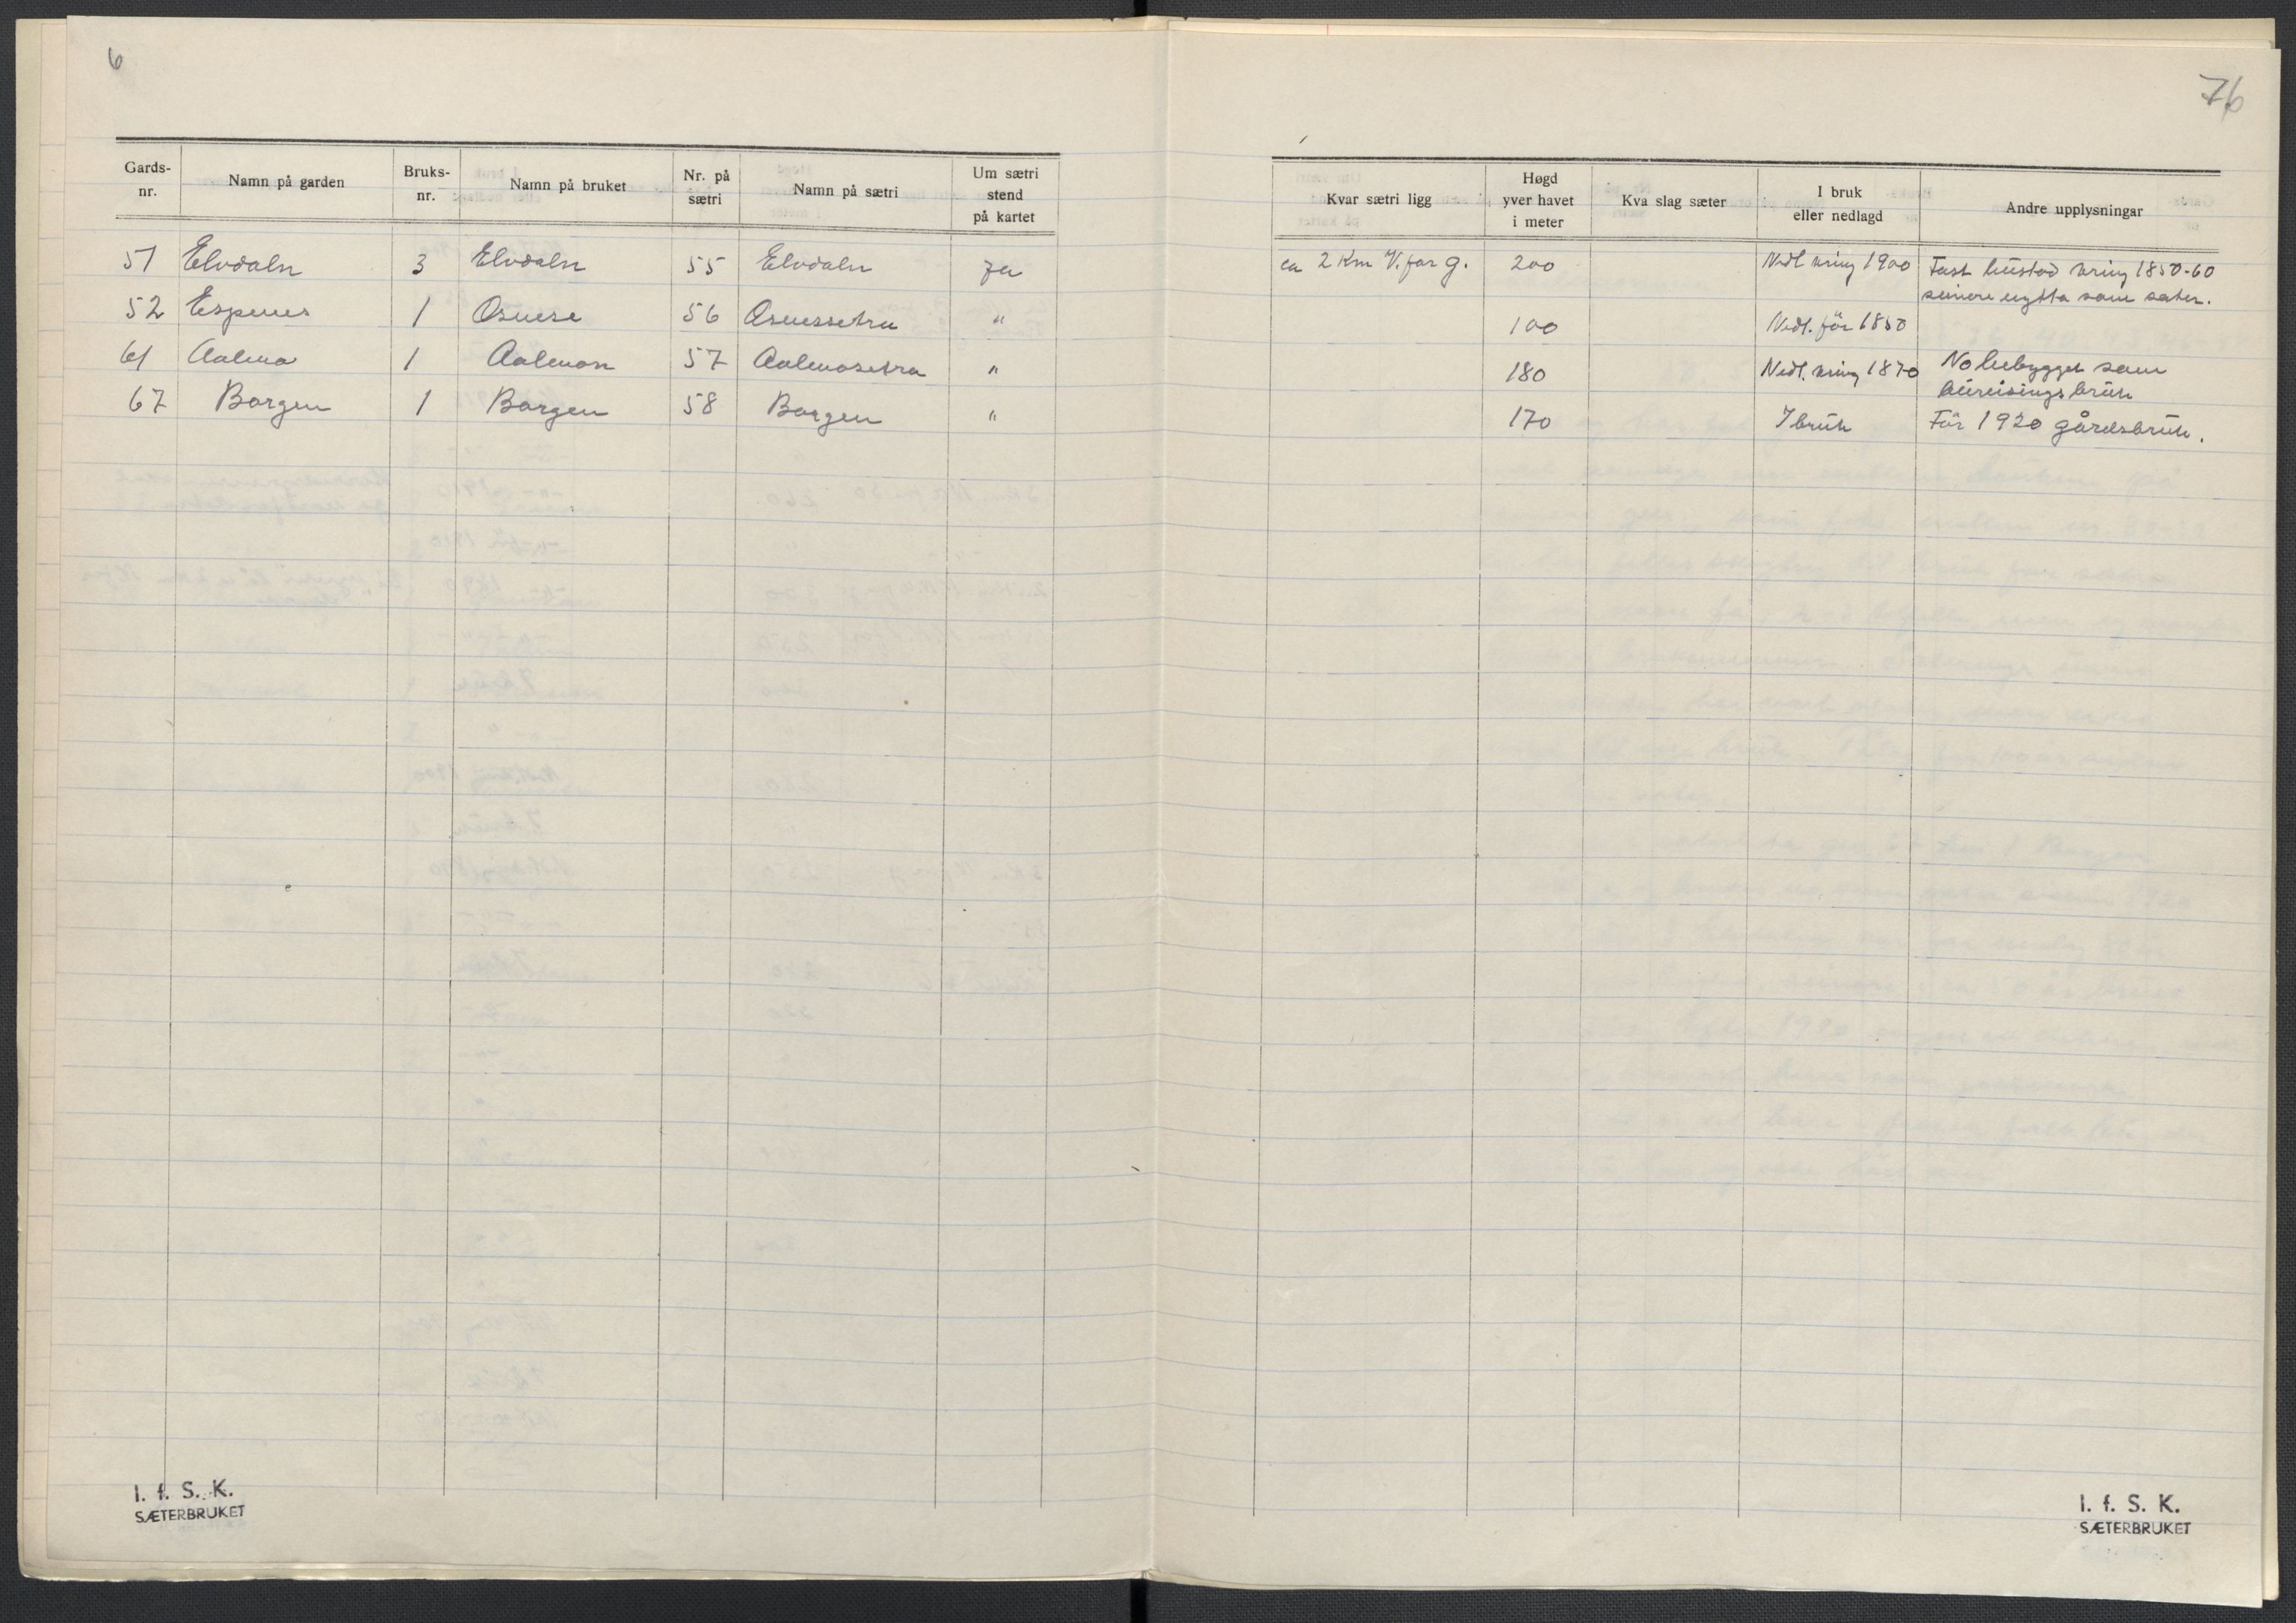 6
76
Gards-nr. Namn på garden Bruks-nr. Namn på bruket Nr. på sætri Namn på sætri Um sætri stend på kartet Kvar sætri ligg Høgd yver havet i meter Kva slag sæter I bruk eller nedlagd Andre upplysningar
51 Elvdaln 3 Elvdaln 55 Elvdaln Ja ca 2 Km V. for g. 200 Nedl kring 1900 Fast bustad kring 1850-60
seinere nytta som sæter.
52 Espnes 1 Osnese 56 Osnessetra " 100 Nedl. før 1850
61 Aalmo 1 Aalmon 57 Aalmosetra " 180 Nedl. kring 1870 No utbygget som
bureisingsbruk
67 Borgen 1 Borgen 58 Borgen " 170 I bruk Før 1920 gårdsbruk.
I. f. S. K.
SÆTERBRUKET
I. f. S. K.
SÆTERBRUKET